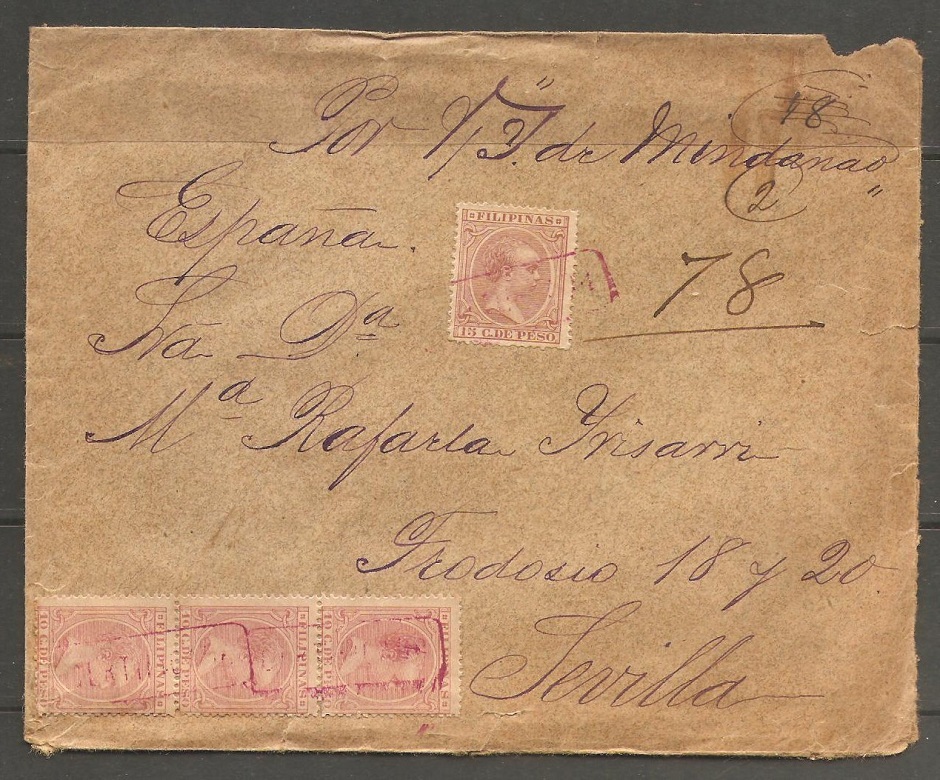 Por V/ "I. de Mindanao"
18
2
España.
FILIPINAS
15 C. DE PESO
78
Sra Dª
Mª Rafaela Yrisarri
Teodosio 18 y 20
Sevilla
FILIPINAS
10 C. DE PESO
FILIPINAS
10 C. DE PESO
FILIPINAS
10 C. DE PESO